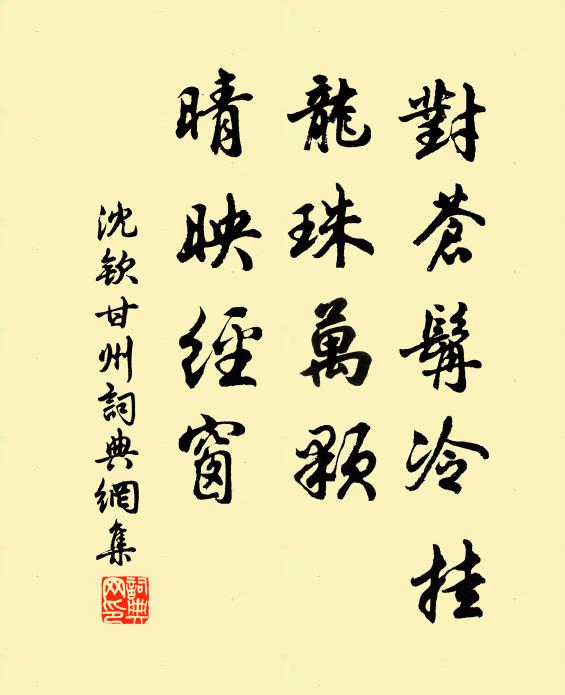 對蒼髯冷挂
龍珠萬顆
晴映經窗
沈欽甘州詞典網集
詞典網印